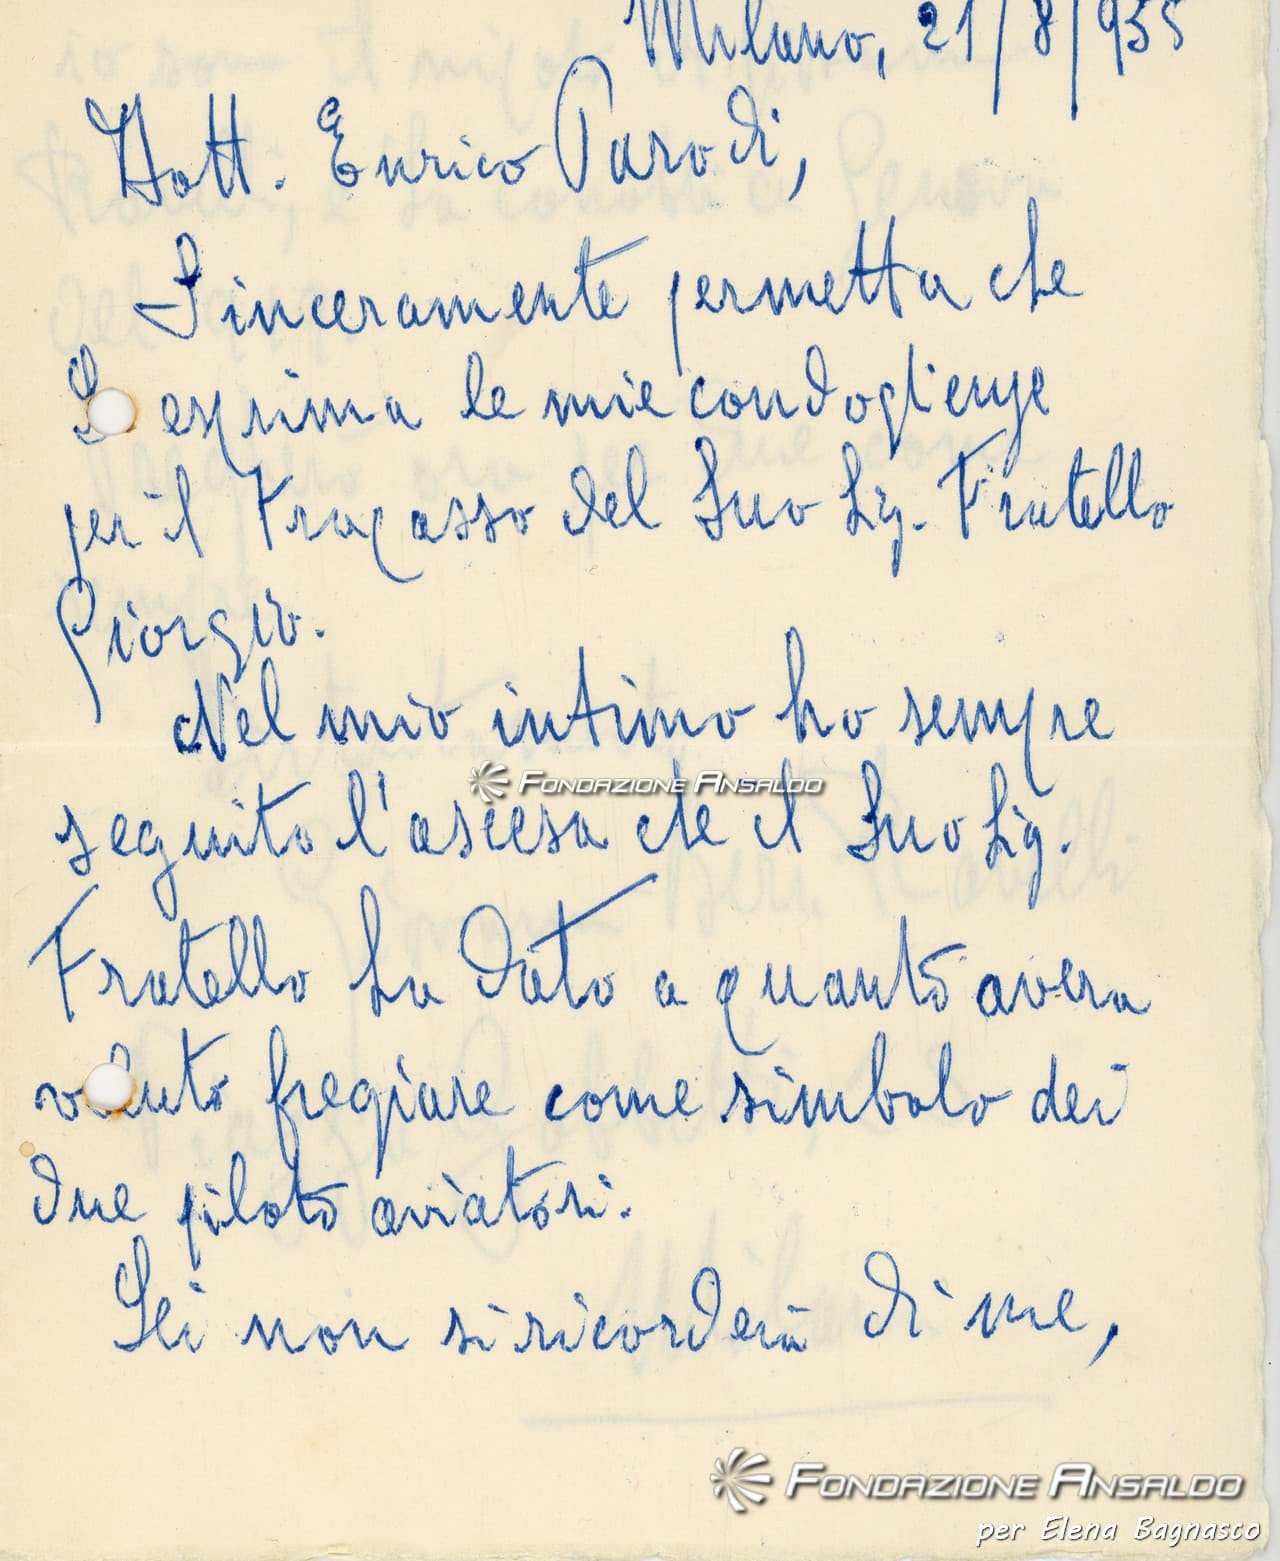 Milano, 21/8/955
Dott. Enrico Parodi,
Sinceramente permetta che
Le esprima le mie condoglienze
per il Tracasso del Suo Sig. Fratello
Giorgio.
Nel mio intimo ho sempre
FONDAZIONE ANSALDO
seguito l'ascesa che il Suo Sig.
Fratello ha dato a quanto aveva
voluto fregiare come simbolo dei
due piloti aviatori.
Lei non si ricorderà di me,
FONDAZIONE ANSALDO
per Elena Bagnasco